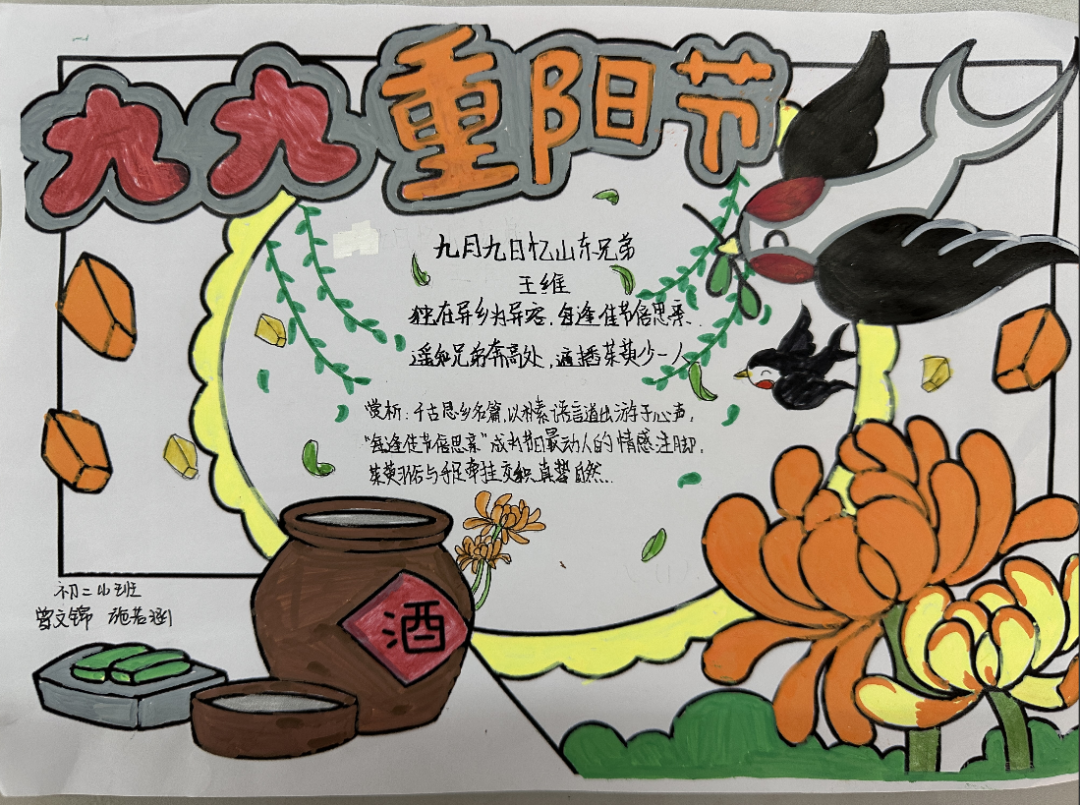 九九重阳节
九月九日忆山东兄弟
王维
独在异乡为异客,每逢佳节倍思亲.
遥知兄弟奔高处,遍插茱萸少一人
赏析:千古思乡名篇,以朴素语言道出游子心声,
"每逢佳节倍思亲"成为节日最动人的情感注脚.
茱萸习俗与手足牵挂交织,真挚自然...
酒
初二 班
曾文锦 施若涵